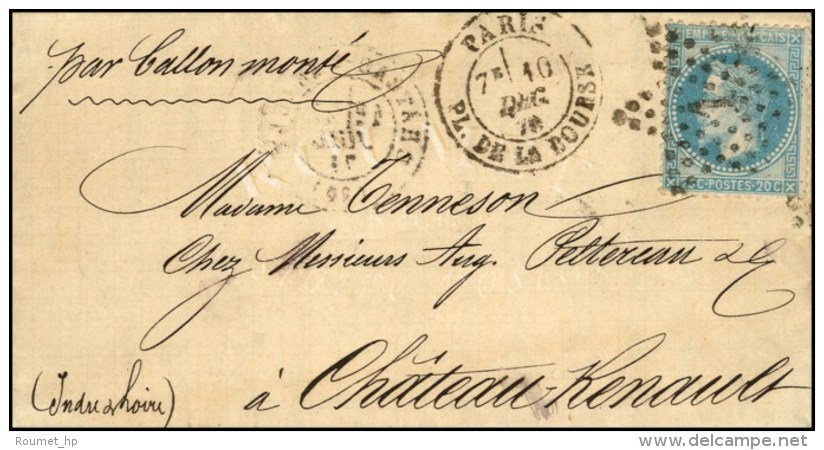 par ballon monté
PARIS
7E 10
DEC.
70
PL. DE LA BOURSE
EMPIRE FRANÇAIS
20 C-POSTES-20 C
Madame Tenneson
Chez Messieurs Aug. Peltereau & C
à Château-Renault
(Indre & Loire)
Roumet_hp
delcampe.net